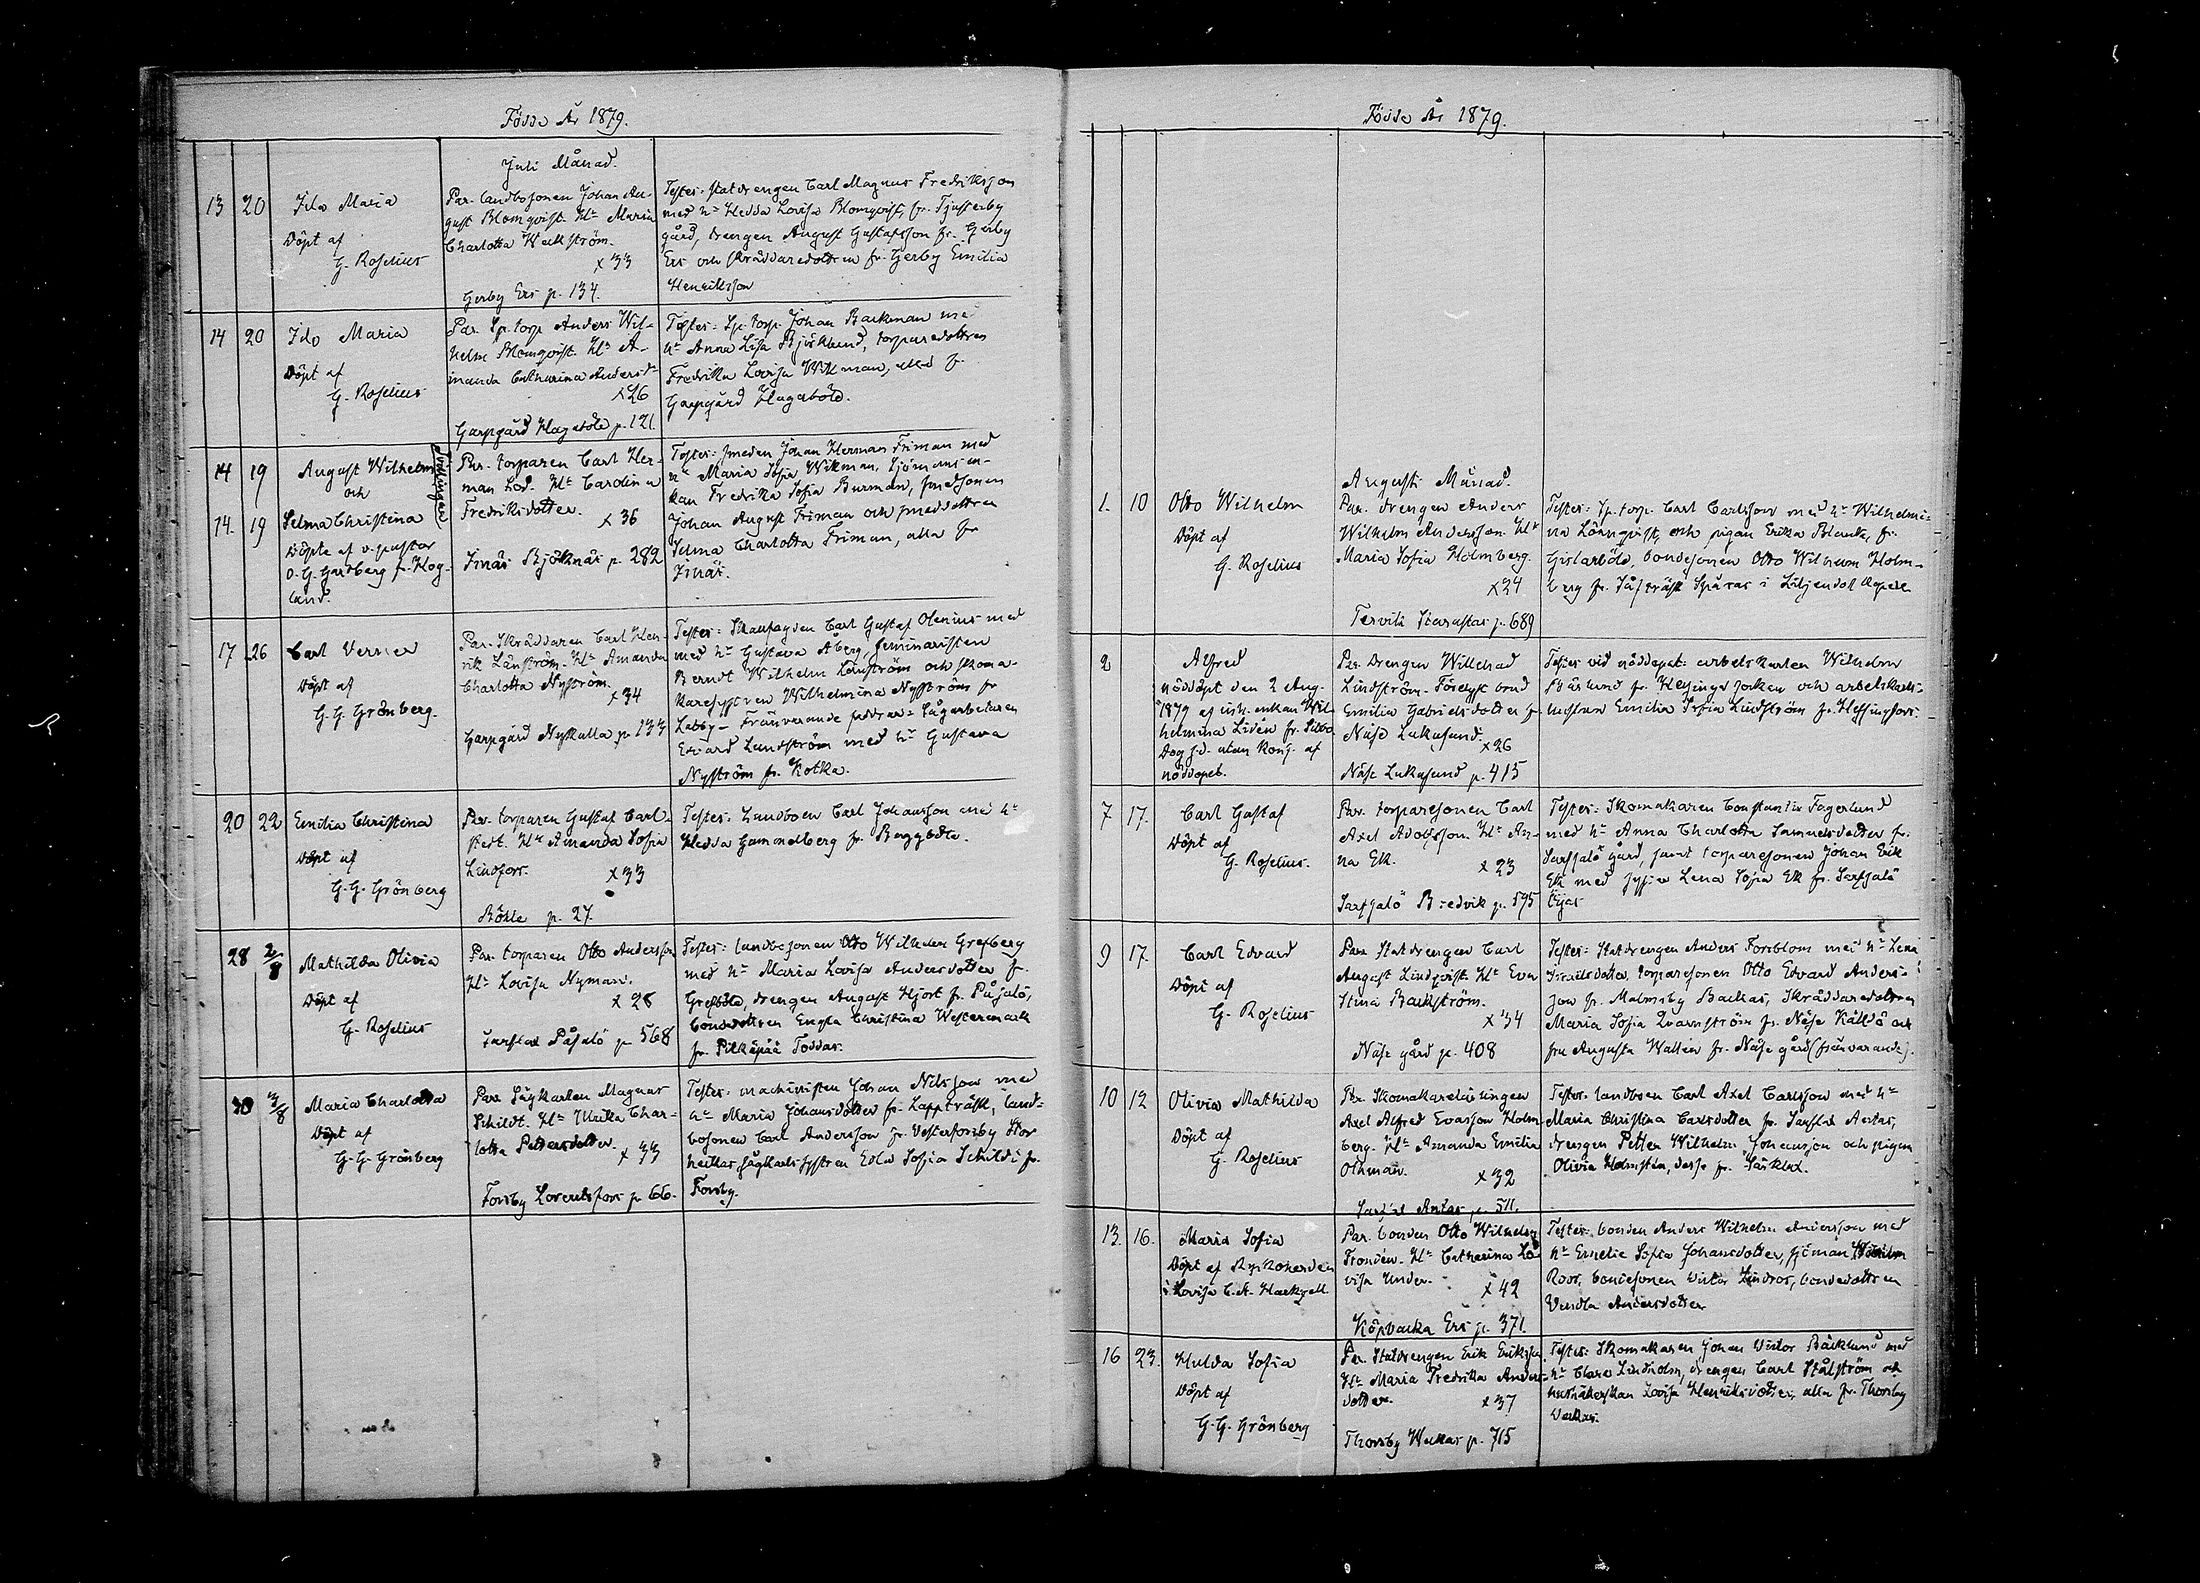 Födde År 1879.
Juli Månad.
13 20 Ida Maria
Döpt af
G. Roselius
Par. landbosonen Johan Au-
gust Blomqvist. H:u Maria
Charlotta Weckström.
x 33
Gerby Ers p. 134.
Testes: statdrengen Carl Magnus Fredriksson
med h:u Hedda Lovisa Blomqvist, fr. Tjusterby
gård, drengen August Gustafsson fr. Gerby
Ers och skräddaredottren fr. Gerby Emilia
Henriksson
14 20 Ida Maria
Döpt af
G. Roselius
Par. Sp. torp. Anders Wil-
helm Blomqvist. H:u A-
manda Catharina Andersd:r
x 26
Garpgård Hagaböle p. 121.
Testes: Sp. torp. Johan Backman med
h:u Anna Lisa Björklund, torparedottren
Fredrika Lovisa Wikman, alla fr.
Garpgård Hagaböle.
14 19 August Wilhelm
och
14. 19 Selma Christina
tvillingar
Döpte af v. pastor
O. G. Hardberg fr. Hog-
land.
Par. torparen Carl Her-
man Lod. H:u Carolina
Fredriksdotter.
x 36
Isnäs Björknäs p. 282
Testes: smeden Johan Herman Friman med
h:u Maria Sofia Wikman, sjömansen-
kan Fredrika Sofia Burman, smedsonen
Johan August Friman och smeddottren
Selma Charlotta Friman, alla fr
Isnäs.
17 26 Carl Verner
Döpt af
G. G. Grönberg.
Par. Skräddaren Carl Hen-
rik Lönström. H:u Amanda
Charlotta Nyström
x 34
Garpgård Nykulla p. 133
Testes: Skaufogden Carl Gustaf Olenius med
med h:u Gustava Åberg, seminaristen
Berndt Wilhelm Lönström och skoma-
karesystren Wilhelmina Nyström fr
Labby – Frånvarande faddrar: Sågarbetaren
Edvard Lundström med h:u Gustava
Nyström fr. Kotka.
20 22 Emilia Christina
Döpt af
G. G. Grönberg
Par. torparen Gustaf Carl-
stedt. H:u Amanda Sofia
Lindfors.
x 33
Böhle p. 27.
Testes: Landboen Carl Johansson med h:u
Hedda Gammelberg fr. Baggböle.
28 2/8 Mathilda Olivia
Döpt af
G. Roselius
Par. torparen Otto Andersson
H:u Lovisa Nyman.
x 28
Sarflax Påsalö p 568
Testes: landbosonen Otto Wilhelm Grefberg
med h:u Maria Lovisa Andersdotter fr.
Grefböle, drengen August Hjort fr. Påsalö,
bondedottren Engla Christina Westermark
fr. Pitkäpää Toddas.
30 3/8 Maria Charlotta
Döpt af
G. G. Grönberg
Par. Sågkarlen Magnus
Schildt. H:u Ulrika Char-
lotta Pettersdotter.
x 33
Forsby Lorentsfors p 66.
Testes: machinisten Johan Nilsson med
h:u Maria Johansdotter fr. Lappträsk, land-
bosonen Carl Andersson fr. Vesterforsby Stor
heikas, sågkarlssystren Edla Sofia Schildt fr.
Forsby.
Födde År 1879.
Augusti Månad.
1. 10 Otto Wilhelm
Döpt af
G. Roselius
Par. drengen Anders
Wilhelm Andersson. H:u
Maria Sofia Holmberg.
x 24
Tervik Starastas p. 689
Testes: Sp. torp. Carl Carlsson med h:u Wilhelmi-
na Lönnqvist, och pigan Erika Blenk, fr.
Gislarböle, bondesonen Otto Wilhelm Holm-
berg fr. Säfträsk Spåras i Liljendal kapell
2 Alfred
nöddöpt den 2 Aug.
1879 af inh. enkan Wil-
helmina Lidén fr. Sibbo
Dog s.d. utan konf. af
nöddopet.
Par. Drengen Willehad
Lindström. Förelofv. brud
Emilia Gabrielsdotter fr
Näse Lukasund.
x 26
Näse Lukasund p. 415
Testes vid nöddopet: arbetskarlen Wilhelm
fr. Helsinge socken och arbetskarls-
hustrun Emilia Sofia Lindström fr. Helsingfors.
7 17. Carl Gustaf
Döpt af
G. Roselius.
Par. torparesonen Carl
Axel Adolfsson. H:u An-
na Ek.
x 23
Sarfsalö Bredvik p. 595
Testes: Skomakaren Constantin Fagerlund
med h:u Anna Charlotta Samuelsdotter fr.
Sarfsalö gård, samt torparesonen Johan Erik
Ek med syster Lena Sofia Ek fr. Sarfsalö
9 17. Carl Edvard
Döpt af
G. Roselius.
Par. Statdrengen Carl
August Lindqvist. H:u Eva
Stina Backström.
x 34
Näse gård p. 408
Testes: Statdrengen Anders Forsblom med h:u Lena
Israelsdotter, torparesonen Otto Edvard Anders-
son fr. Malmsby Backas, Skräddaredottren
Maria Sofia Qvarnström fr. Näse Källdö och
fru Augusta Wallin fr. Näse gård (frånvarande).
10 12 Olivia Mathilda
Döpt af
G. Roselius
Par. Skomakarelärlingen
Axel Alfred Evasson Holm
berg. H:u Amanda Emilia
Öhman.
x 32
Sarflax Antas p. 511.
Testes: landboen Carl Axel Carlsson med h:u
Maria Christina Carlsdotter fr. Sarflax Antas,
drengen Petter Wilhelm Johansson och pigan
Olivia Holmstén, desse fr. Särklax.
13. 16. Maria Sofia
Döpt af Kyrkoherden
i Lovisa C. A. Hackzell
Par. bonden Otto Wilhelm
Fronden. H:u Catharina Lo-
visa Under.
x 42
Köpbacka Ers p. 371.
Testes: bonden Anders Wilhelm Andersson med
h:u Emelie Sofia Johansdotter, sjöman Wilhelm
Roos, bondesonen Victor Lindros, bondedottren
Vendla Andersdotter
16 23. Hulda Sofia
Döpt af
G. G. Grönberg
Par. Statdrengen Erik Eriksson
H:u Maria Fredrika Anders-
dotter.
x 37
Thorsby Weckas p. 715
Testes: Skomakaren Johan Victor Bäcklund med
h:u Clara Lindholm, drengen Carl Stålström och
Lovisa Henriksdotter, alla fr. Thorsby
Weckas.